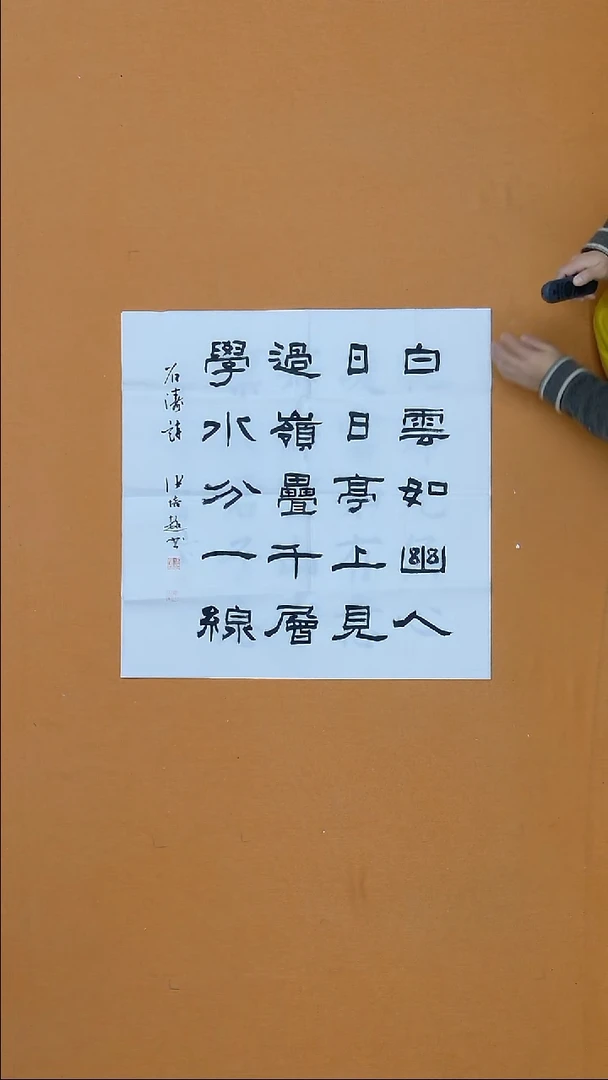 白雲如幽人
日日亭上見
過嶺疊千層
學水分一線
石濤詩